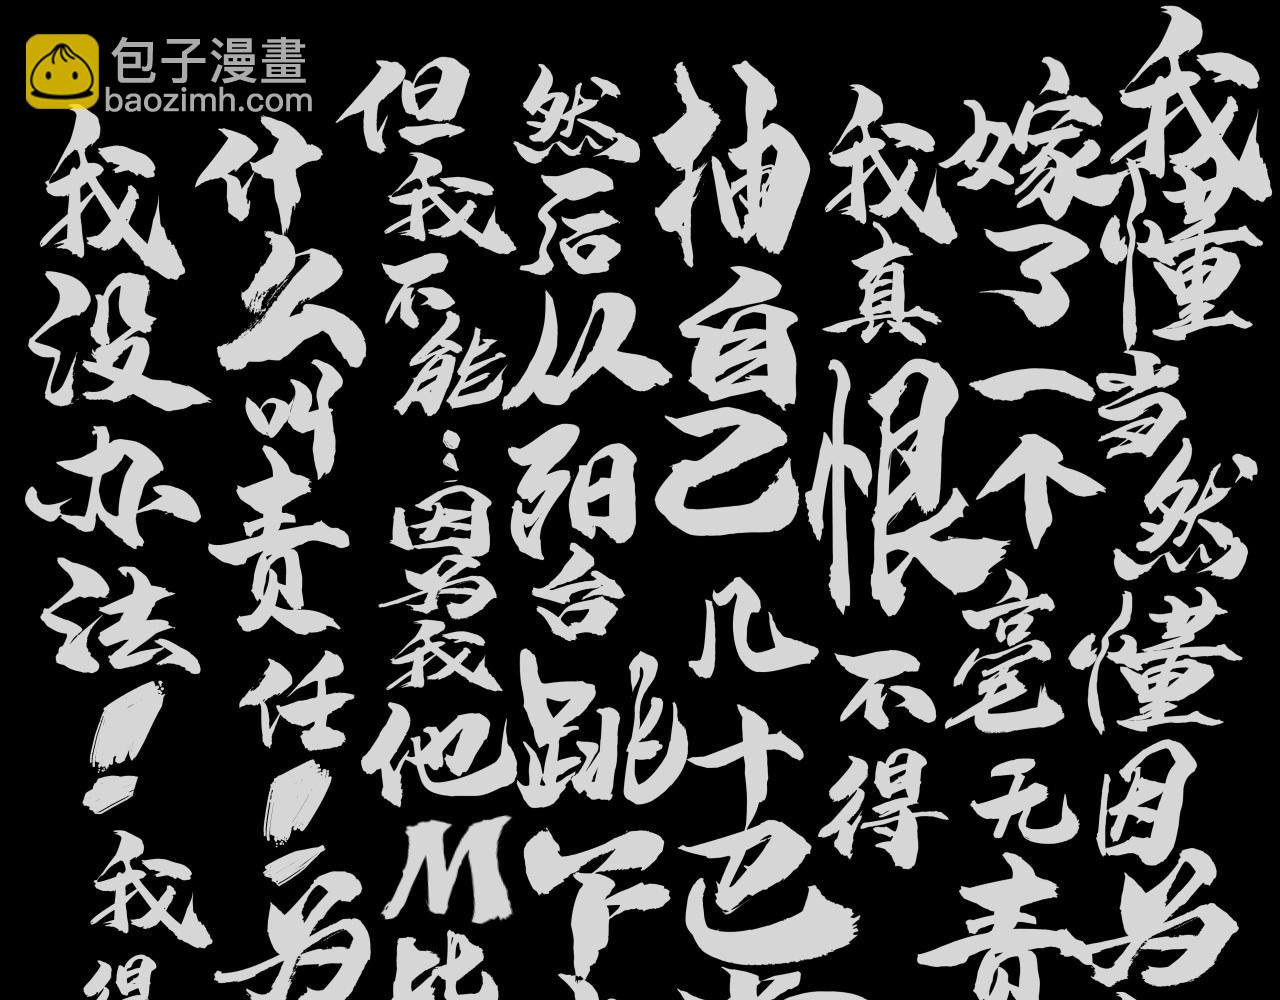 包子漫畫
baozimh.com
我懂当然懂因为
嫁了一个毫无责
我真恨不得
抽自己几十巴
然后从阳台跳下
但我不能…因为我他M比
什么叫责任！为
我没办法！我得